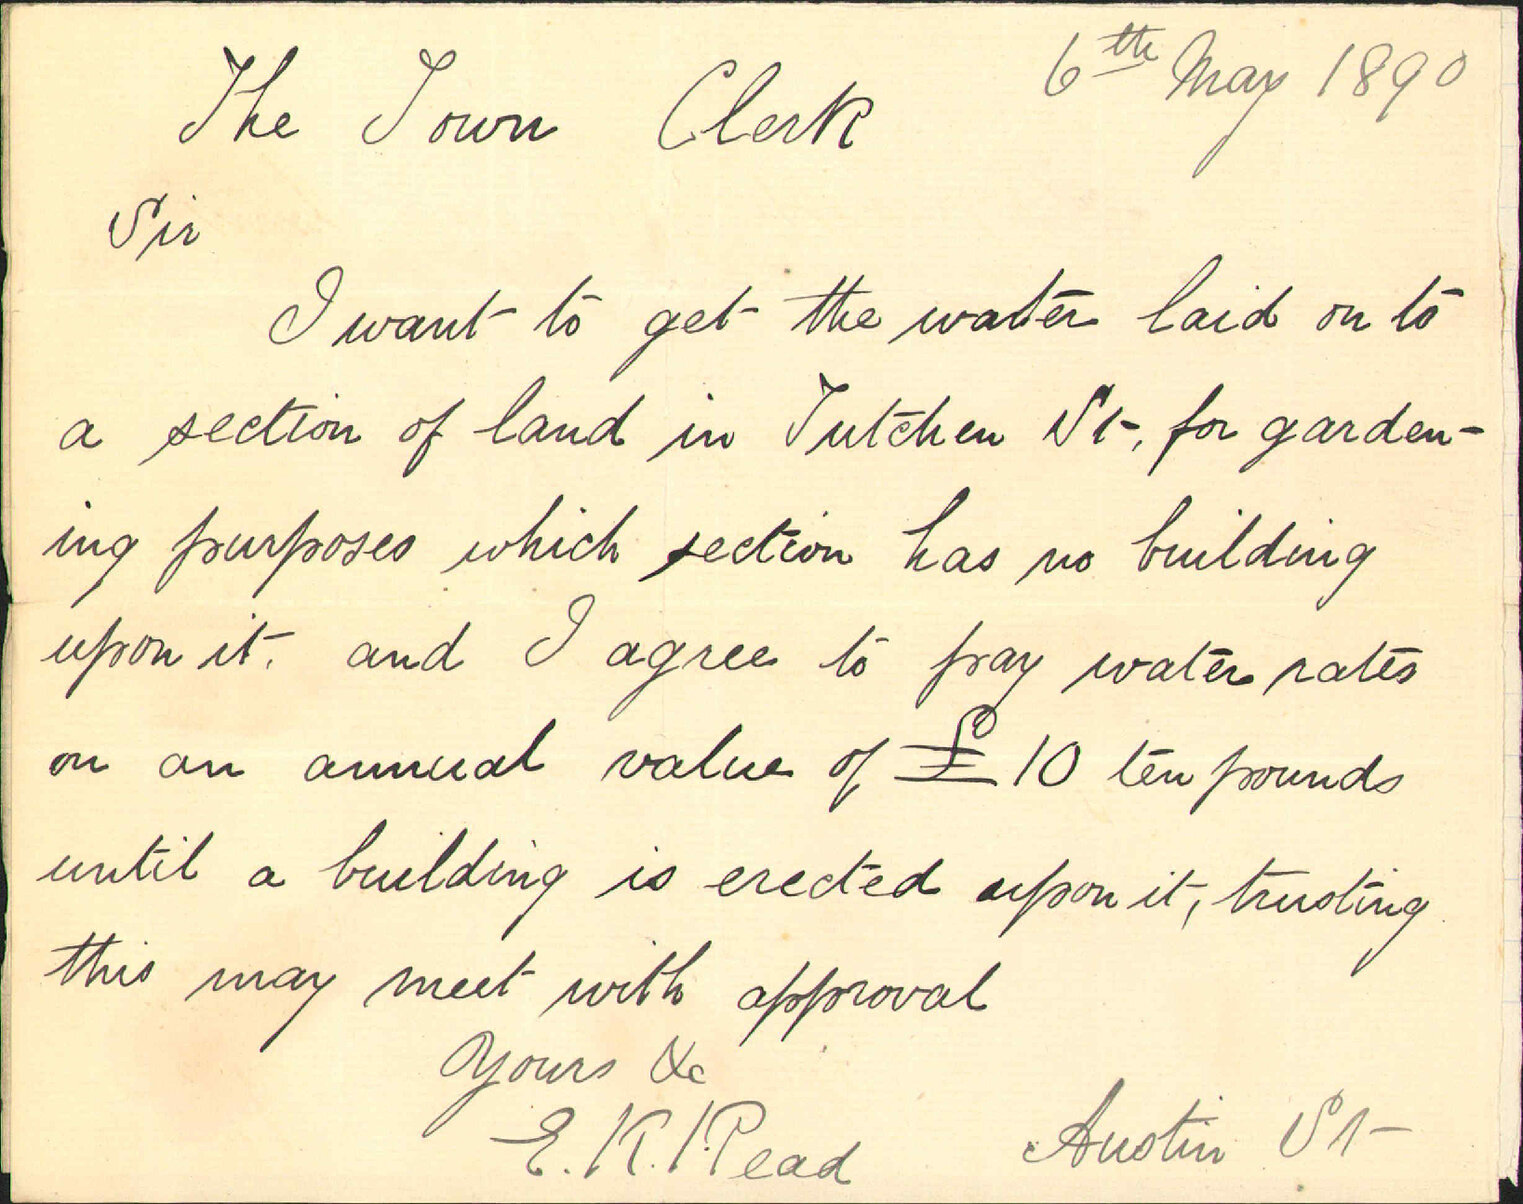 6th May 1890
The Town Clerk
Sir
I want to get the water laid on to
a section of land in Tutchen St, for garden-
ing purposes which section has no building
upon it. and I agree to pay water rates
on an annual value of £10 ten pounds
until a building is erected upon it, trusting
this may meet with approval
Yours &c
E. K. Read
Austin St